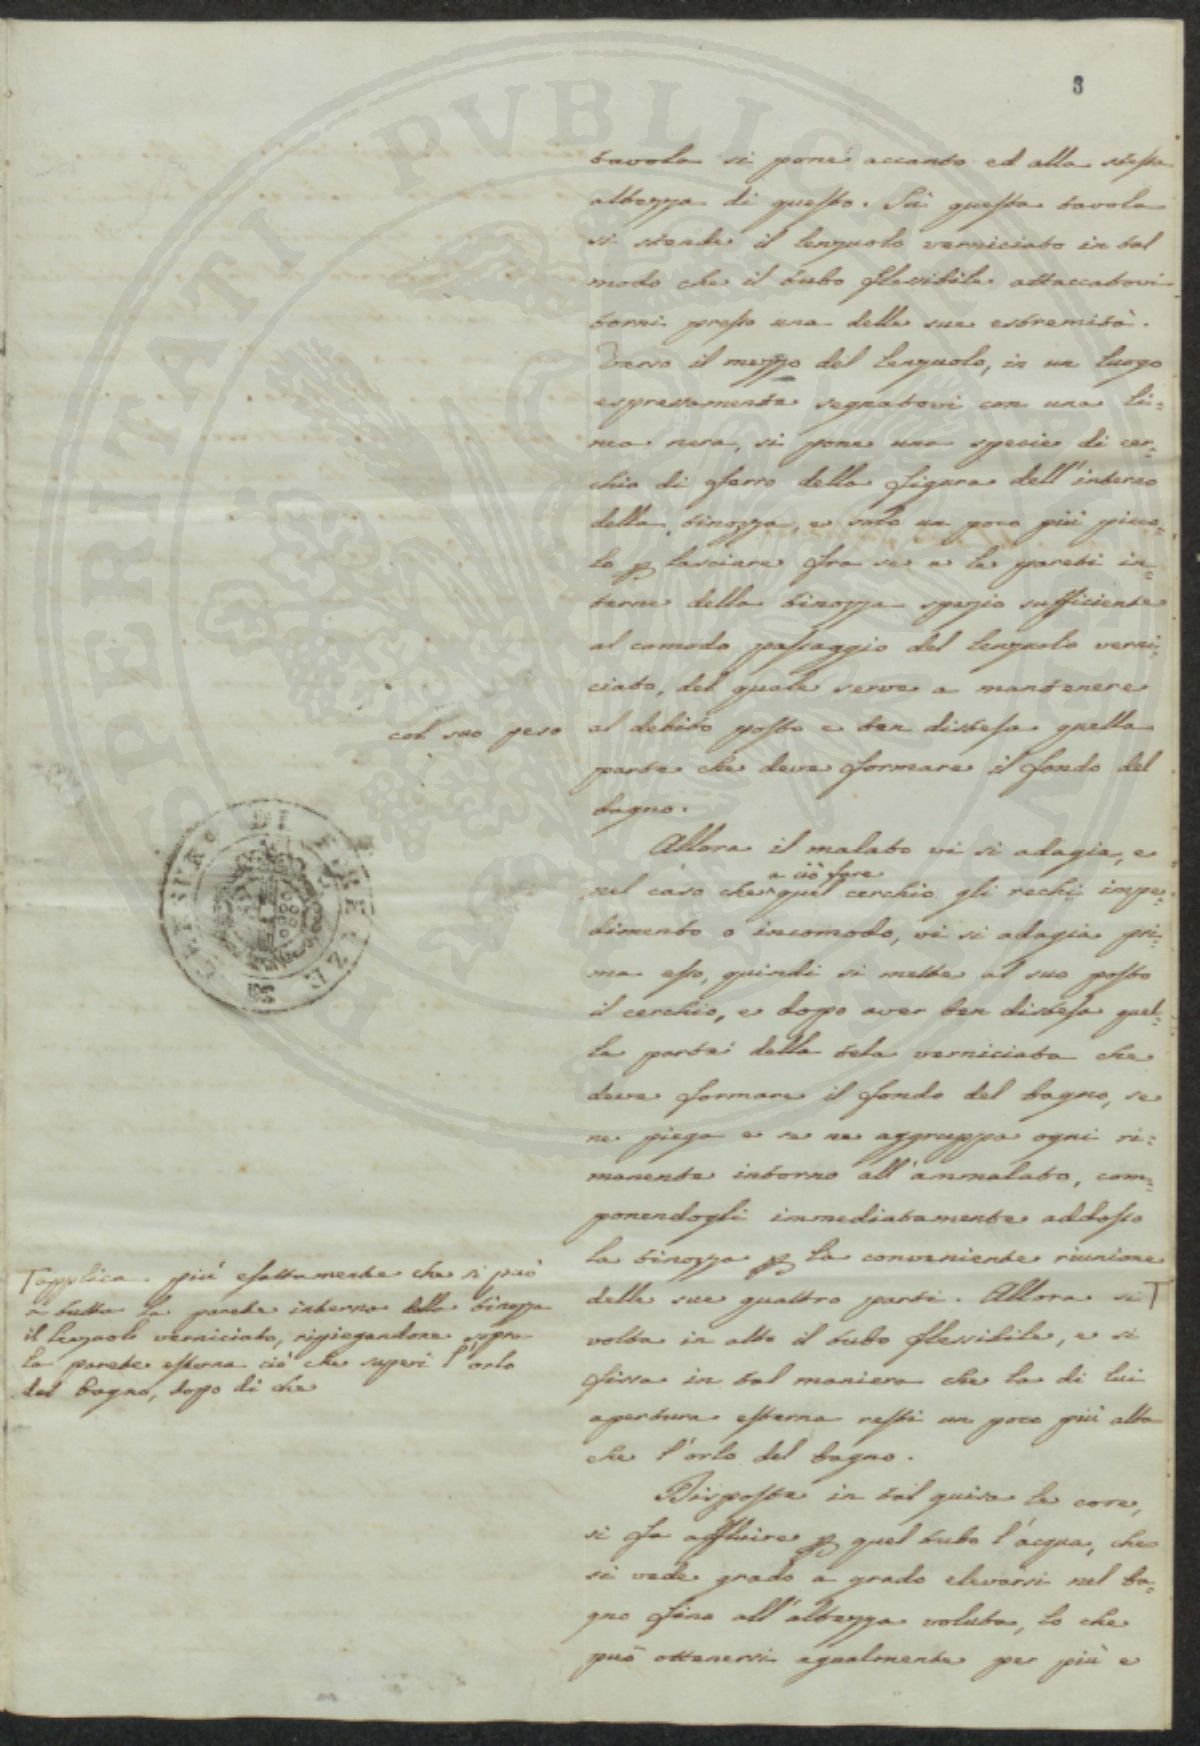 3
tavola si pone accanto ed alla stessa
altezza di questo. Su questa tavola
si stende il lenzuolo verniciato in tal
modo che il tubo flessibile attaccatovi
torni presso una delle sue estremità.
Verso il mezzo del lenzuolo, in un luogo
espressamente segnatovi con una li=
nea nera, si pone una specie di cer=
chio di ferro della figura dell'interno
della tinozza, e solo un poco più picco=
lo p lasciare fra se e le pareti in=
terne della tinozza spazio sufficiente
al comodo passaggio del lenzuolo verni=
ciato, del quale serve a mantenere
col suo peso
al debito posto e ben distesa quella
parte che deve formare il fondo del
bagno.
Allora il malato vi si adagia, e
a ciò fare
nel caso che quel cerchio gli rechi impe=
dimento o incomodo, vi si adagia pri=
ma esso, quindi si mette al suo posto
il cerchio, e dopo aver ben distesa quel=
la parte della tela verniciata che
deve formare il fondo del bagno, se
ne piega e se ne aggruppa ogni ri=
manente intorno all'ammalato, com=
ponendogli immediatamente addosso
la tinozza p la conveniente riunione
delle sue quattro parti. Allora si T
T applica più esattamente che si può
a tutta la parete interna della tinozza
il lenzuolo verniciato, ripiegandone sopra
la parete esterna ciò che superi l'orlo
del bagno, dopo di che
volta in alto il tubo flessibile, e si
fissa in tal maniera che la di lui
apertura esterna resti un poco più alta
che l'orlo del bagno.
Disposte in tal guisa le cose,
si fa affluire p quel tubo l'acqua, che
si vede grado a grado elevarsi nel ba=
gno fino all'altezza voluta, lo che
può ottenersi egualmente per più e
SPERITATI PUBLICAE